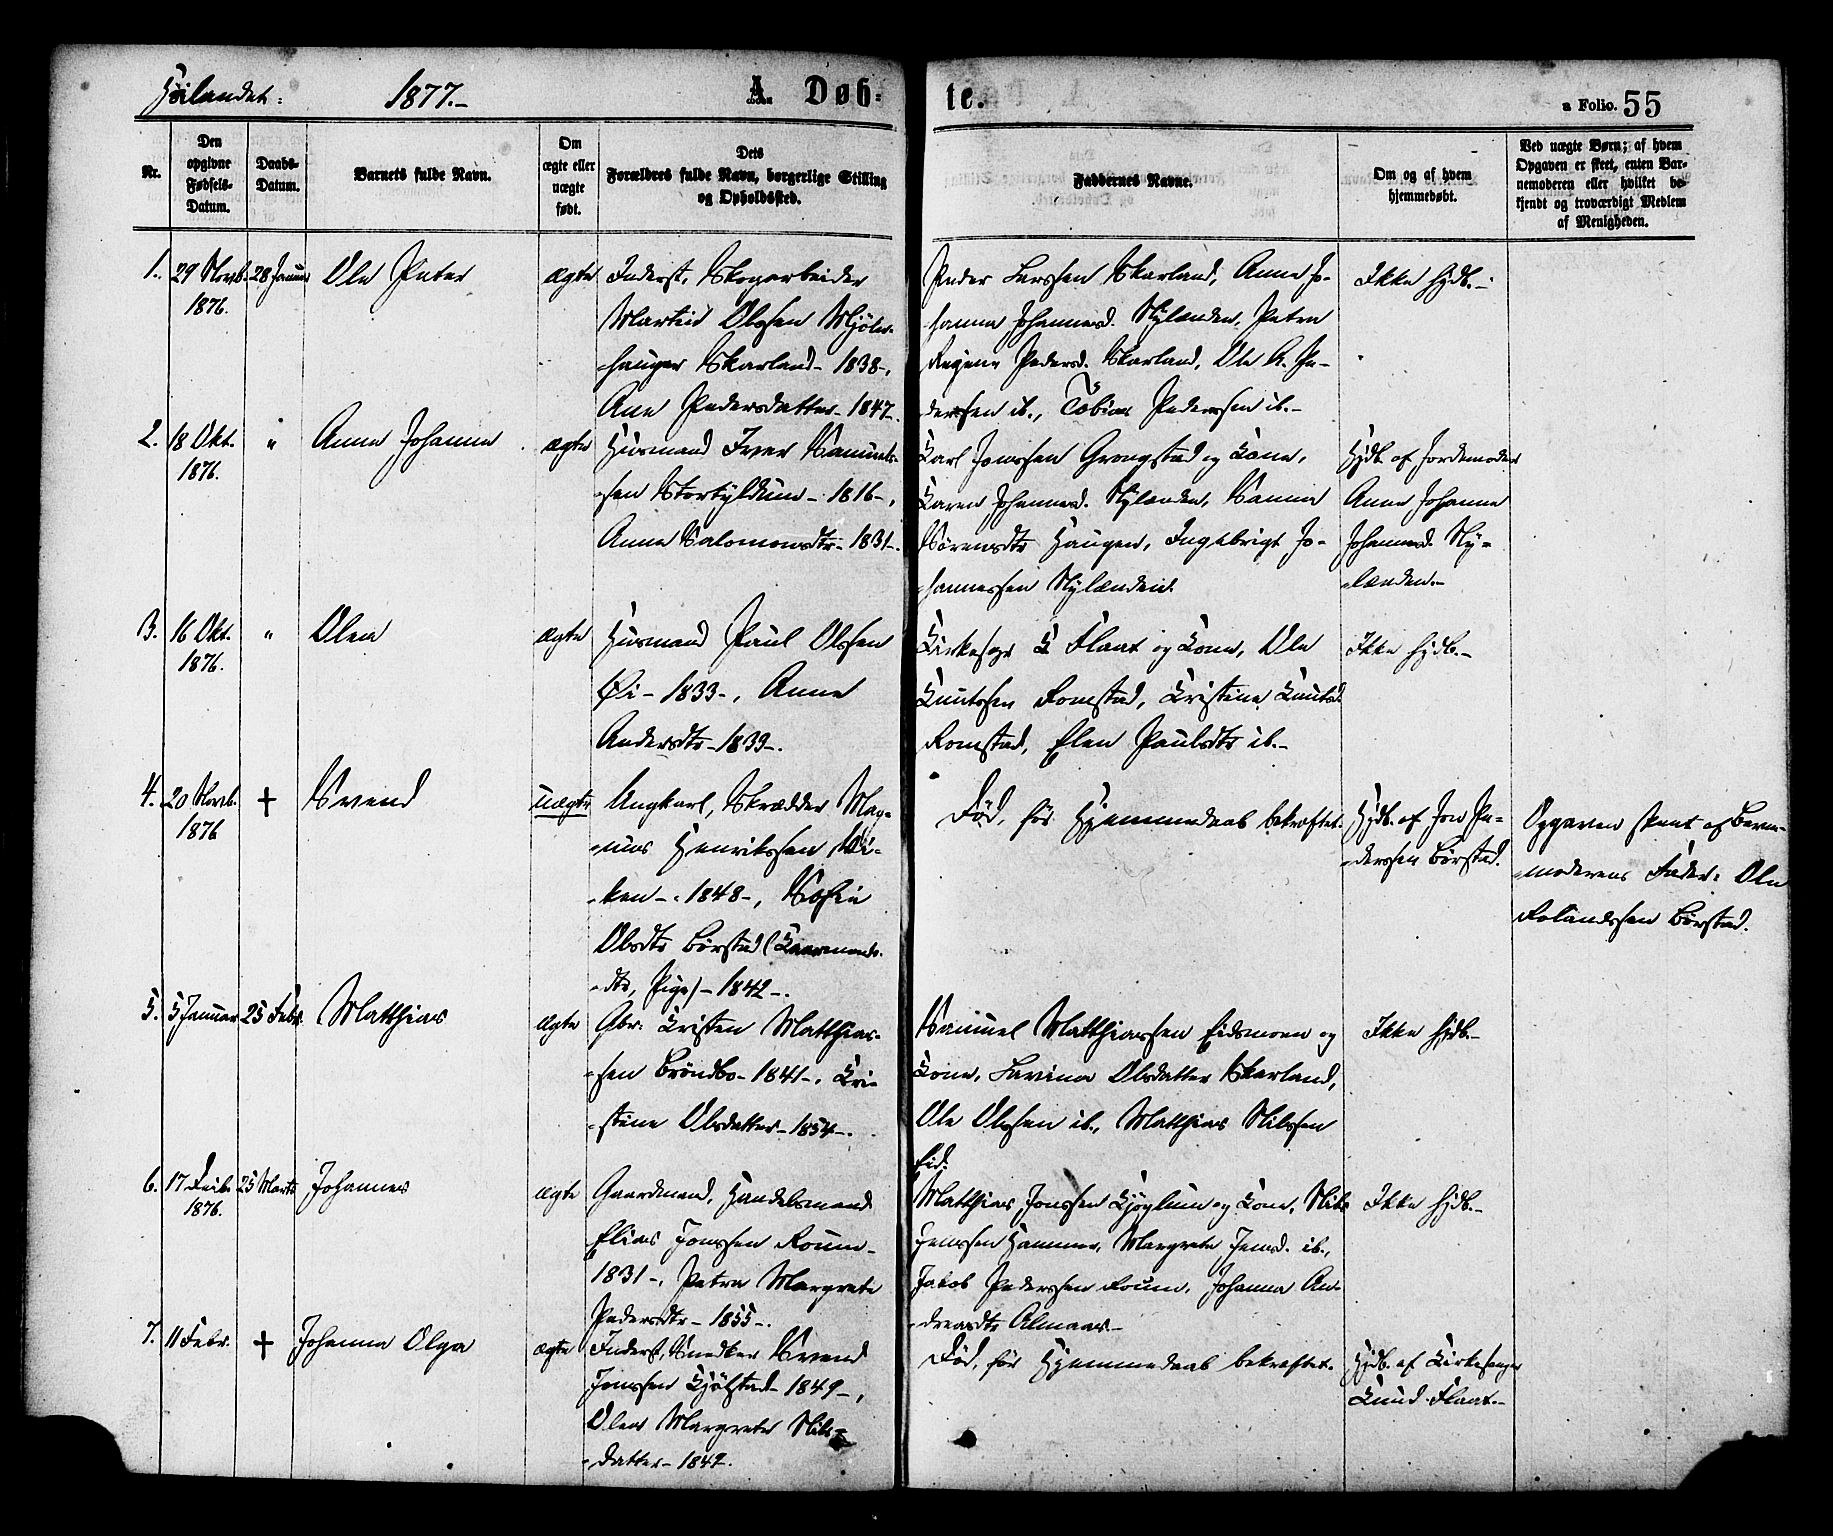 Høilandet: 1877.- A. Døb= te. a Folio. 55
Nr.
Den opgivne Fødsels-Datum.
Daabs-Datum.
Barnets fulde Navn.
Om ægte eller uægte født.
Dets Forældres fulde Navn, borgerlige Stilling og Opholdssted.
Faddernes Navne.
Om og af hvem hjemmedøbt.
Ved uægte Børn; af hvem Opgaven er skeet, enten Barnemoderen eller hvilket bekjendt og troværdigt Medlem af Menigheden.
1. 29 Novb. 28 Januar Ole Peter ægte Inderst, Skogarbeider
1876. Martin Olssen Mjöln-
-hauger Skarland - 1838 -,
Ane Pedersdatter - 1847.
Peder Larssen Skarland, Anne Jo-
-hanna Johannesd. Nylænden, Petra
Regine Pedersd. Skarland, Ole A. Pe-
-derssen ib., Tobias Pederssen ib.-
Ikke hjdb.-
2. 18 Okt. " Anna Johanna ægte Husmand Iver Samuels-
1876. -sen Stortyldum - 1816 -,
Anne Salomonsdtr - 1831 -.
Karl Jonssen Grongstad og Kone,
Karen Johannesd. Nylænden, Sanna
Sörensdtr Haugen, Ingebrigt Jo-
-hannessen Nylænden.
Hjdb. af Jordemoder
Anne Johanna
Johannesd. Ny-
-lænden.-
3. 16 Okt. " Olea ægte Husmand Paul Olssen
1876. Öi - 1833 -, Anne
Andersdtr - 1839 -.
Kirkesgr K Flaat og Kone, Ole
Knutssen Romstad, Kristine Knutsd.
Romstad, Elen Paulsdtr ib.-
Ikke hjdb.-
4. 20 Novb. + Svend uægte Ungkarl, Skrædder Mag-
1876 -nus Henrikssen Vi-
-ken - 1848 -, Sofie
Olsdtr Börstad (Kaarmands-
-dtr, Pige) - 1842 -.
Död, för Hjemmedaab bekræftet.
Hjdb. af Jon Pe-
-derssen Börstad.
Opgaven skeet af Barne-
-moderens Fader: Ole
Rolandssen Börstad.
5. 5 Januar 25 Febr. Matthias ægte Gbr. Kristen Matthias-
-sen Bröndbo - 1841 -, Kri-
-stine Olsdatter - 1854 -.
Samuel Matthiassen Eidsmoen og
Kone, Lavina Olsdatter Skarland,
Ole Olssen ib., Matthias Nilssen
Eid.
Ikke hjdb.-
6. 17 25 Marts Johannes ægte Gaardmand, Handelsmand
1876. Elias Jonssen Roum -
1831 -, Petra Margrete
Pedersdtr - 1855 -.
Matthias Jonssen Kjöglum og Kone, Nils
Jenssen Hammer, Margrete Jensd. ib.,
Jakob Pederssen Roum, Johanna An-
-dreasdtr Almaas -
Ikke hjdb.-
7. 11 Febr. + Johanna Olga ægte Inderst, Snedker Svend
Jonssen Kjölstad - 1849 -,
Olea Margrete Nils-
-datter - 1842.
Död, för Hjemmedaab bekræftet.
Hjdb. af Kirkesanger
Knud Flaat.-